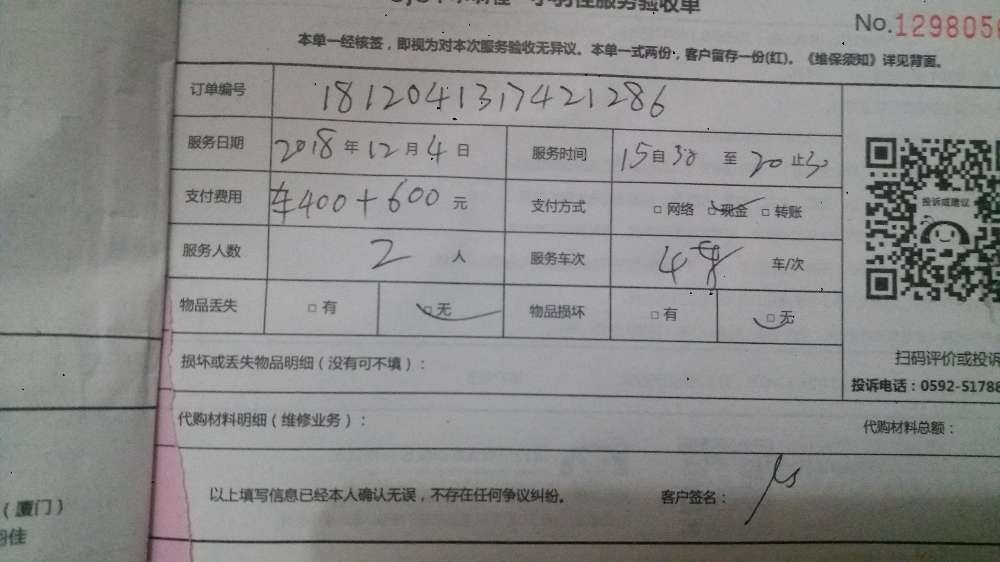 服务验收单
No.1298056
本单一经核签，即视为对本次服务验收无异议。本单一式两份，客户留存一份(红)。《维保须知》详见背面。
订单编号 1812041317421286
服务日期 2018年12月4日 服务时间 15自30 至 20止30
支付费用 车400+600元 支付方式 □网络 □现金 □转账
投诉或建议
服务人数 2 人 服务车次 4 车/次
物品丢失 □有 □无 物品损坏 □有 □无
损坏或丢失物品明细（没有可不填）：
扫码评价或投诉
投诉电话：0592-51788
代购材料明细（维修业务）： 代购材料总额：
以上填写信息已经本人确认无误，不存在任何争议纠纷。 客户签名：
（厦门）
佳